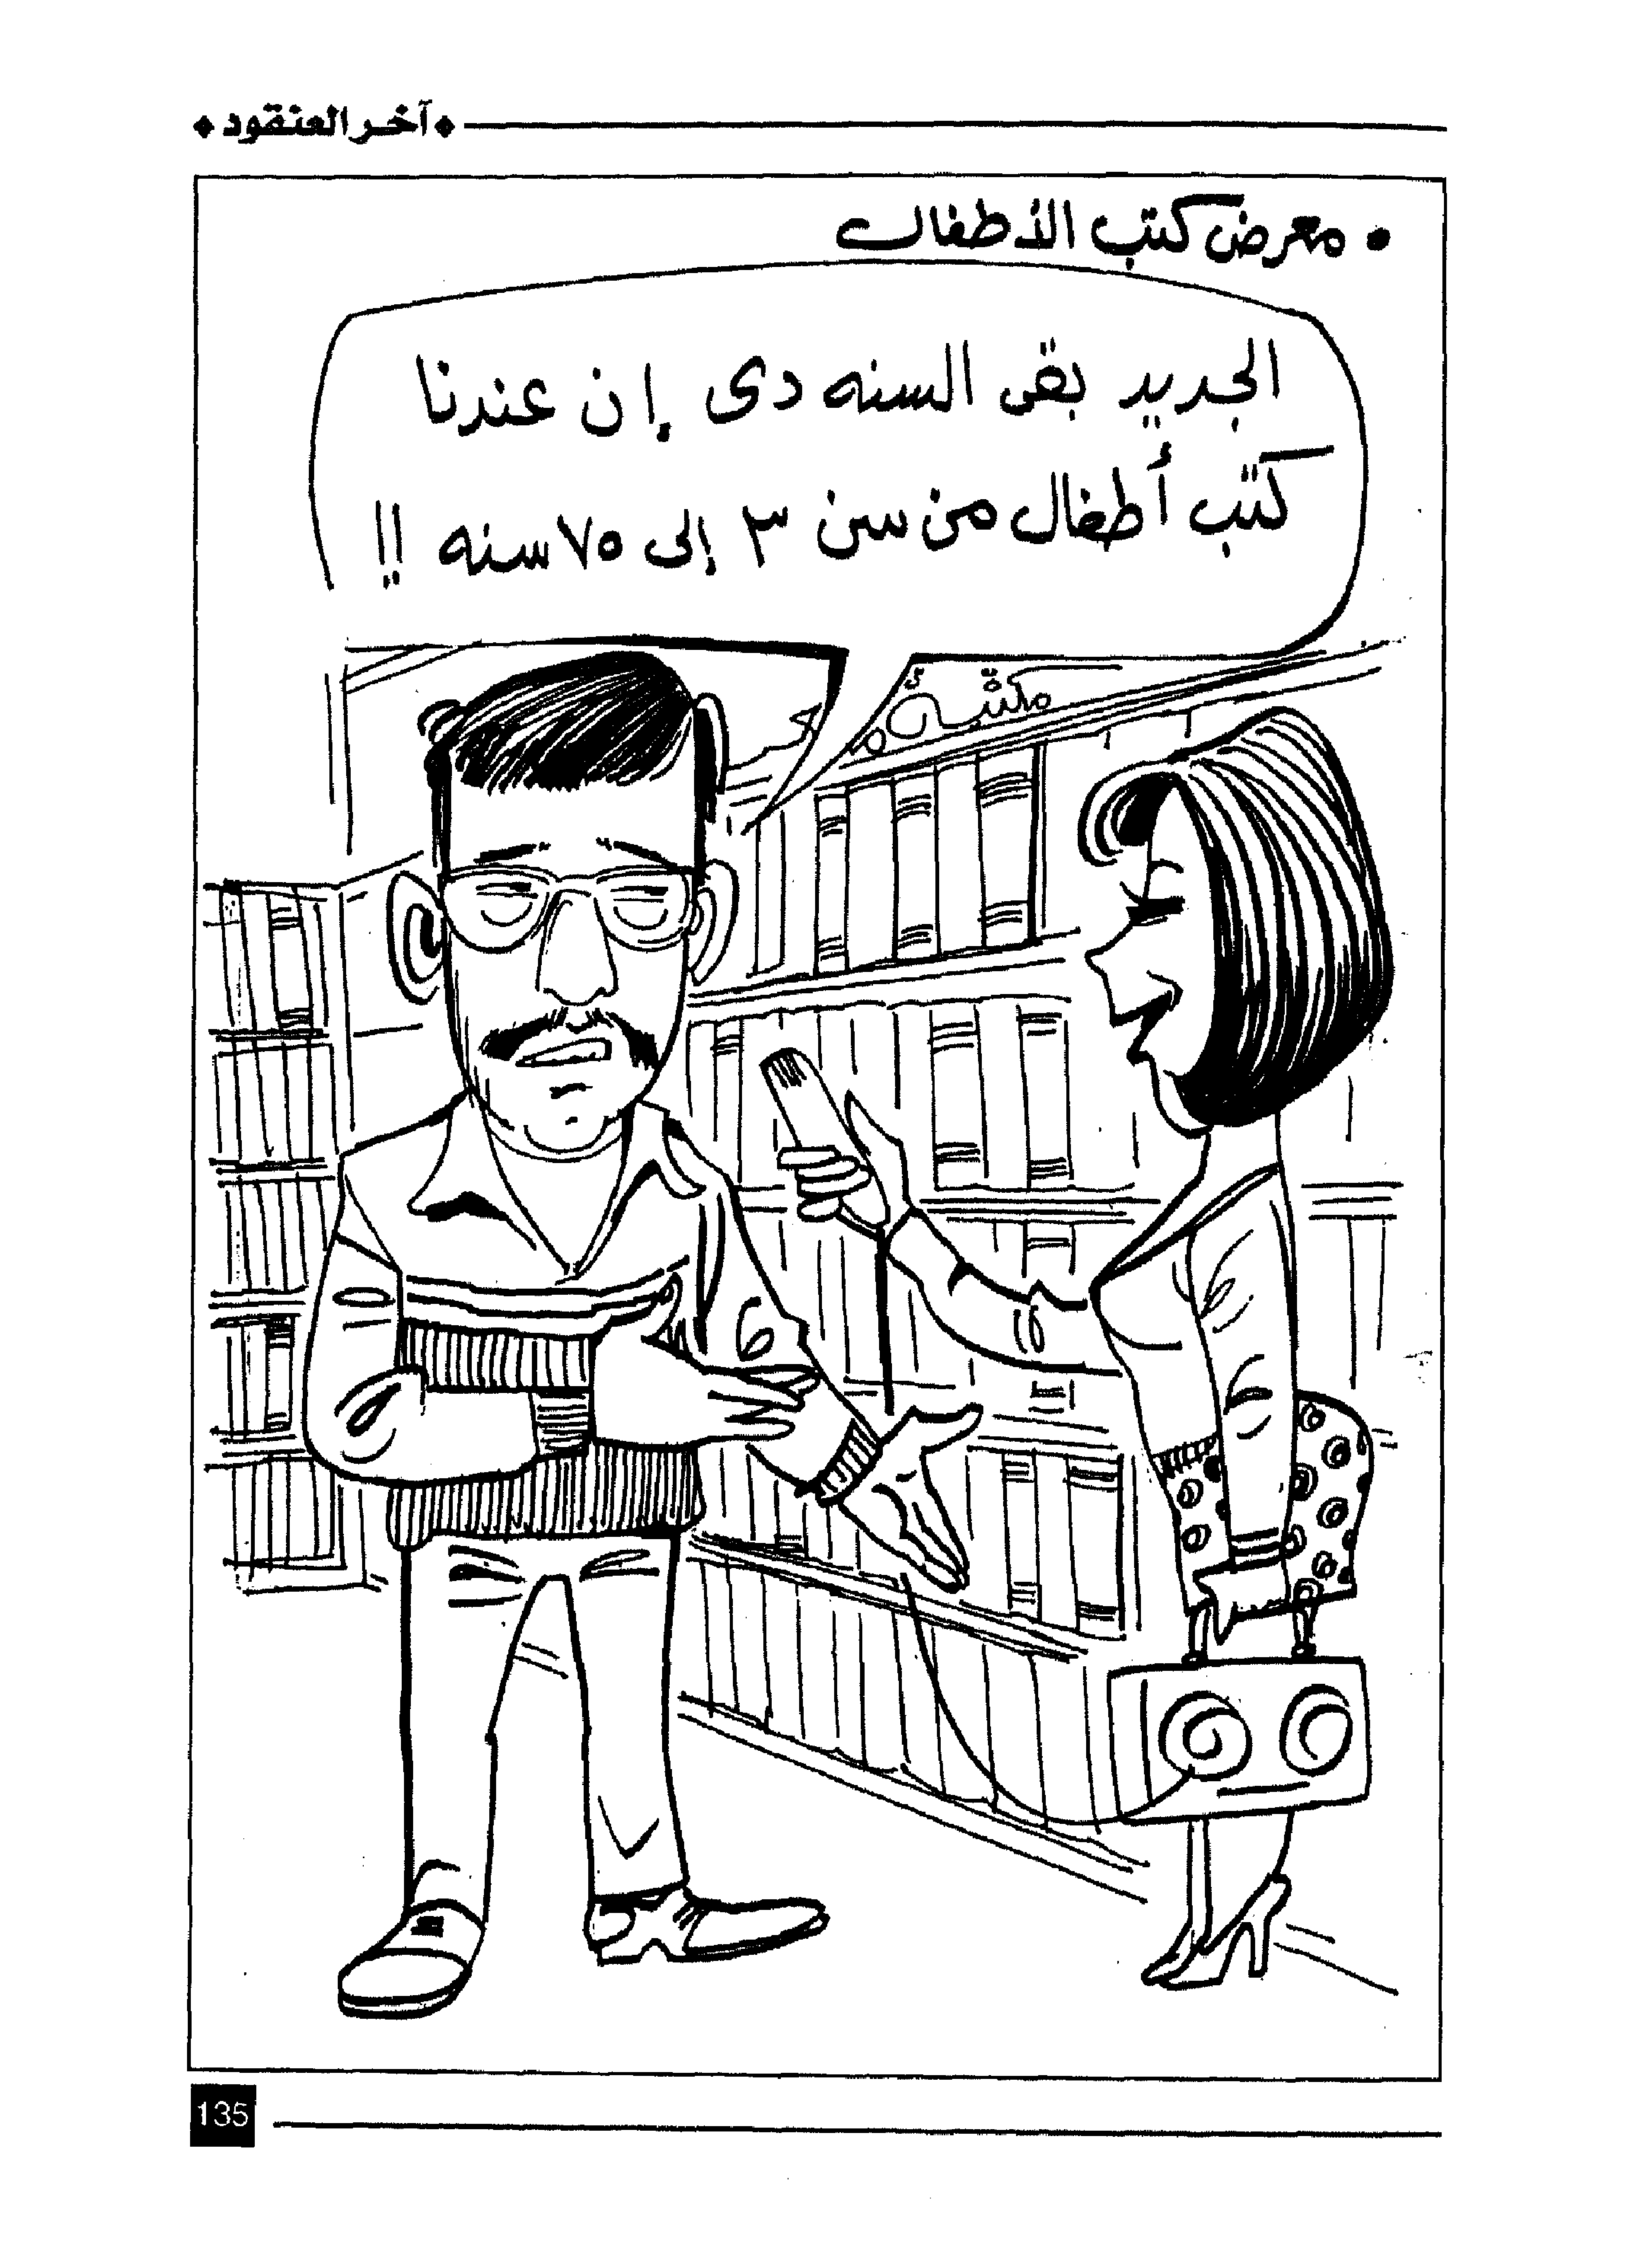 آخر العنقود
• معرض كتب الأطفال
الجديد بقى السنه دى إن عندنا
كتب أطفال من سن ٣ إلى ٧٥ سنه !!
135